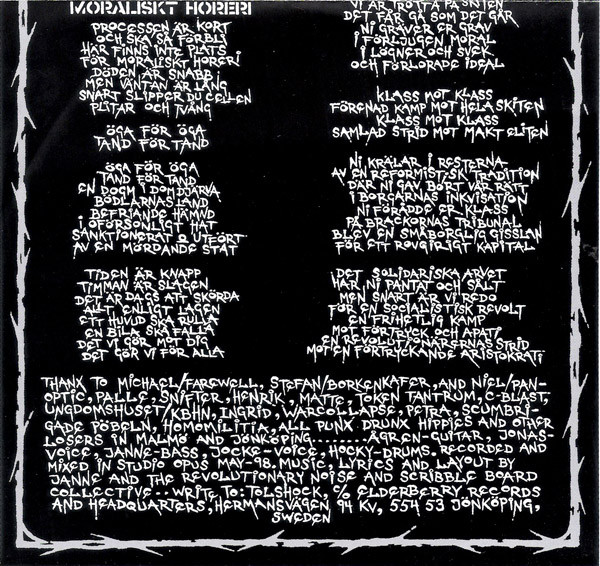 MORALISKT HORERI
PROCESSEN ÄR KORT
OCH SKA SÅ FÖRBLI
HÄR FINNS INTE PLATS
FÖR MORALISKT HORERI
DÖDEN ÄR SNABB
MEN VÄNTAN ÄR LÅNG
SNART SLIPPER DU CELLEN
PLITAR OCH TVÅNG
ÖGA FÖR ÖGA
TAND FÖR TAND
ÖGA FÖR ÖGA
TAND FÖR TAND
EN DOGM I DOM DJÄRVA
BÖDLARNAS LAND
BEFRIANDE HÄMND
OFÖRSONLIGT HAT
SANKTIONERAT & UTFÖRT
AV EN MÖRDANDE STAT
TIDEN ÄR KNAPP
TIMMAN ÄR SLAGEN
DET ÄR DAGS ATT SKÖRDA
ALLT ENLIGT LAGEN
ETT HUVUD SKA RULLA
EN BILA SKA FALLA
DET VI GÖR MOT DIG
DET GÖR VI FÖR ALLA
VI ÄR TROTTA PÅ SKITEN
DET FÅR GÅ SOM DET GÅR
NI GRÄVER ER GRAV
I FÖRLJUGEN MORAL
I LÖGNER OCH SVEK
OCH FÖRLORADE IDEAL
KLASS MOT KLASS
FÖRENAD KAMP MOT HELA SKITEN
KLASS MOT KLASS
SAMLAD STRID MOT MAKTELITEN
NI KRÄLAR I RESTERNA
AV EN REFORMISTISK TRADITION
DÄR NI GAV BORT VÅR RÄTT
I BORGARNAS INKVISATION
NI FÖRÅDDE ER KLASS
PÅ BRACKORNAS TRIBUNAL
BLEV EN SMÅBORGLIG GISSLAN
FÖR ETT ROVGIRIGT KAPITAL
DET SOLIDARISKA ARVET
HAR NI PANTAT OCH SÅLT
MEN SNART ÄR VI REDO
FÖR EN SOCIALISTISK REVOLT
EN FRIHETLIG KAMP
MOT FÖRTRYCK OCH APATI
EN REVOLUTIONÄRERNAS STRID
MOT EN FÖRTRYCKANDE ARISTOKRATI
THANX TO MICHAEL/FAREWELL, STEFAN/BORKENKÄFER, AND NIEL/PAN-
OPTIC, PALLE, SNIFTER, HENRIK, MATTE, TOKEN TANTRUM, C-BLAST,
UNGDOMSHUSET/KBHN, INGRID, WARCOLLAPSE, PETRA, SCUMBRI-
GADE PÖBELN, HOMOMILITIA, ALL PUNX DRUNX HIPPIES AND OTHER
LOSERS IN MALMÖ AND JÖNKÖPING........ÅGREN-GUITAR, JONAS-
VOICE, JANNE-BASS, JOCKE-VOICE, HOCKY-DRUMS. RECORDED AND
MIXED IN STUDIO OPUS MAY-98. MUSIC, LYRICS AND LAYOUT BY
JANNE AND THE REVOLUTIONARY NOISE AND SCRIBBLE BOARD
COLLECTIVE... WRITE TO: TOLSHOCK, C/O ELDERBERRY RECORDS
AND HEADQUARTERS, HERMANSVÄGEN 94 KV, 554 53 JÖNKÖPING,
SWEDEN